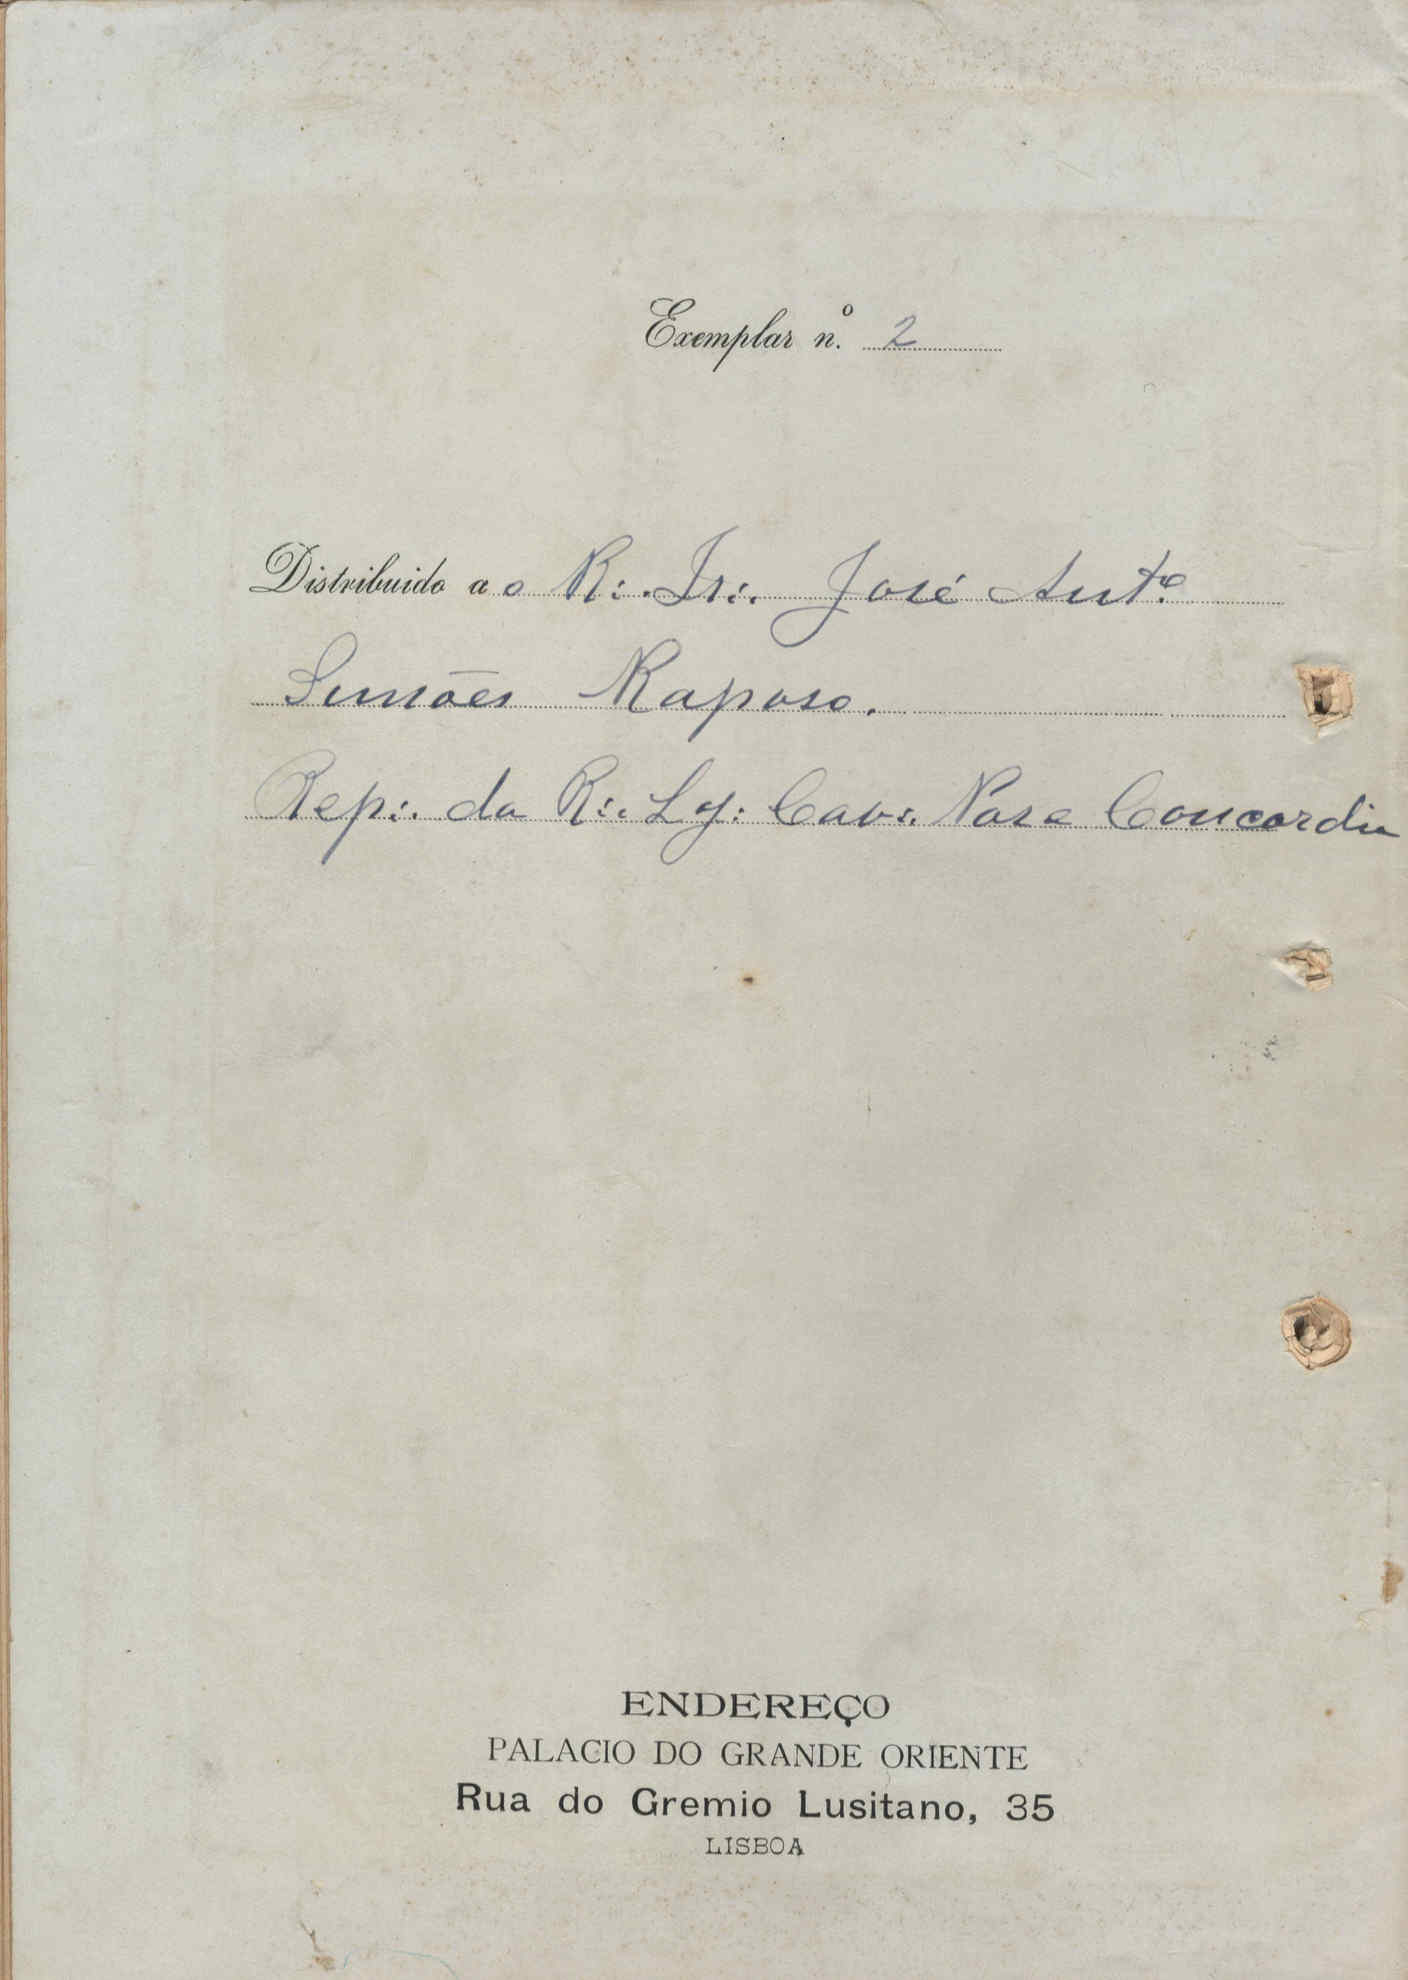 Exemplar n.º 2
Distribuido a o R∴ Ir∴ José Ant.º
Simões Raposo.
Rep∴ da R∴ L∴ Cav∴ Nova Concordia
ENDEREÇO
PALACIO DO GRANDE ORIENTE
Rua do Gremio Lusitano, 35
LISBOA